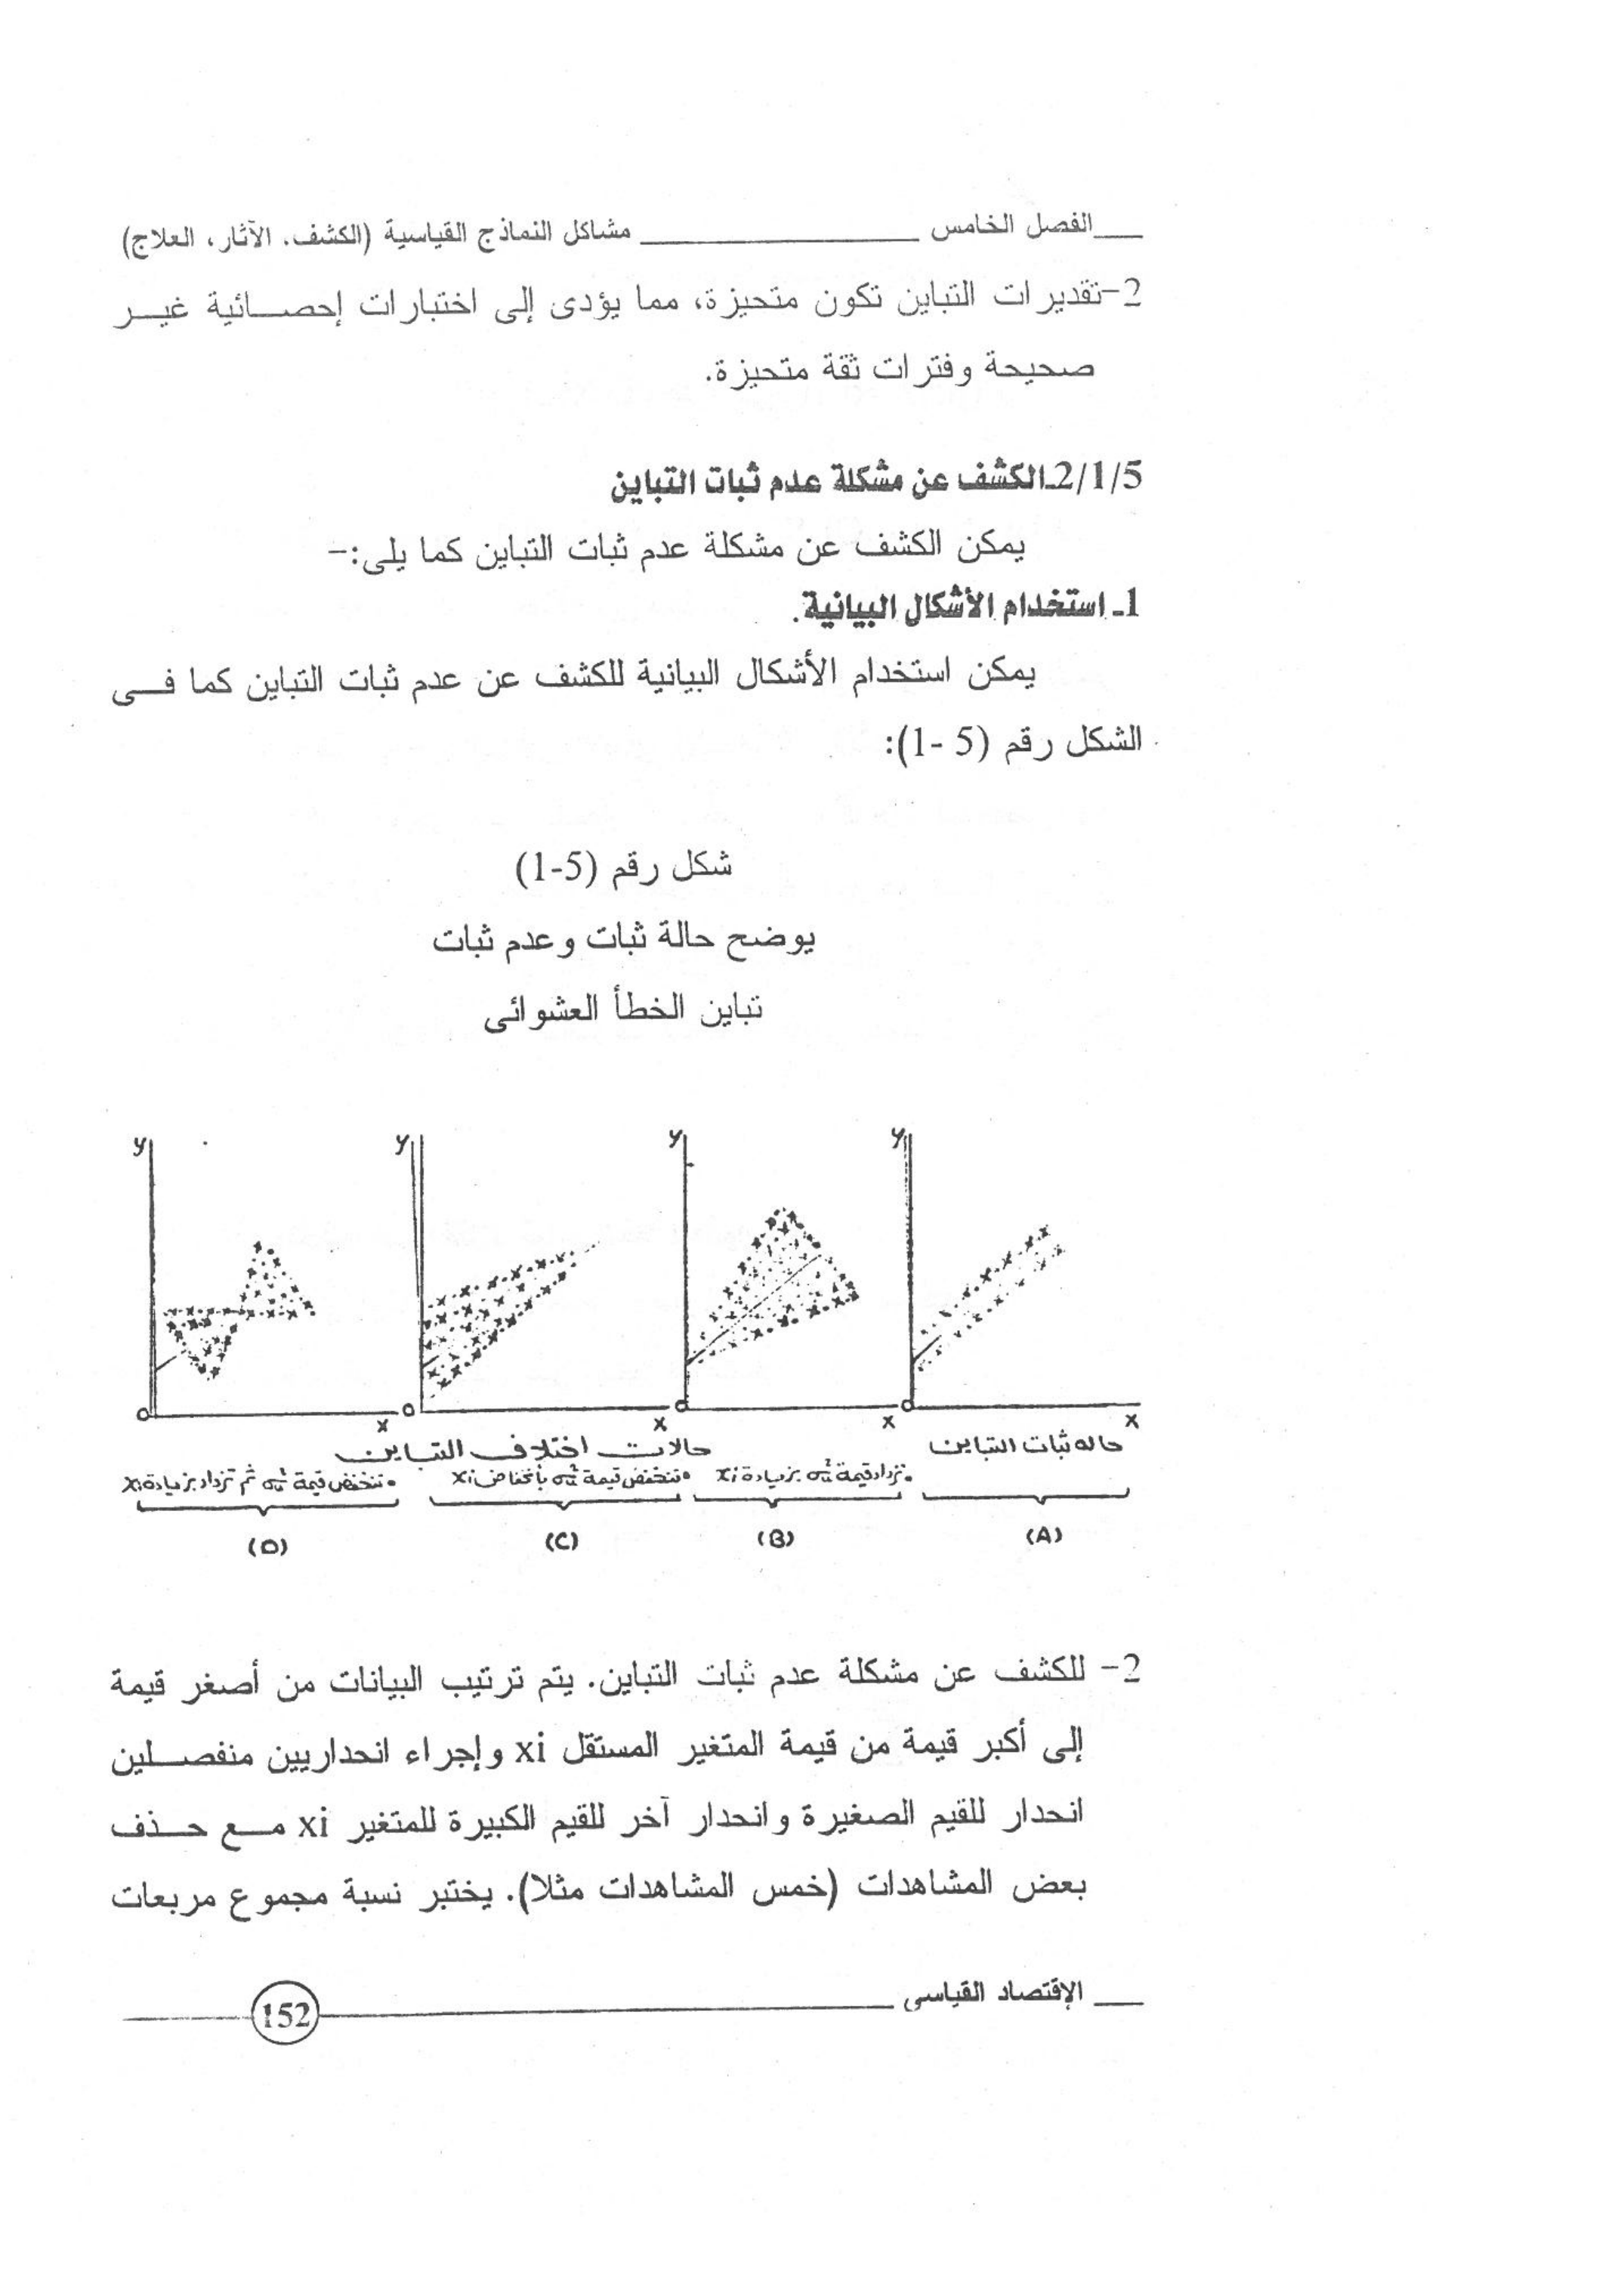 الفصل الخامس مشاكل النماذج القياسية (الكشف. الآثار، العلاج)
2-تقديرات التباين تكون متحيزة، مما يؤدى إلى اختبارات إحصائية غير
صحيحة وفترات ثقة متحيزة.
2/1/5ـالكشف عن مشكلة عدم ثبات التباين
يمكن الكشف عن مشكلة عدم ثبات التباين كما يلى:-
1ـ استخدام الأشكال البيانية.
يمكن استخدام الأشكال البيانية للكشف عن عدم ثبات التباين كما فى
الشكل رقم (5 -1):
شكل رقم (5-1)
يوضح حالة ثبات وعدم ثبات
تباين الخطأ العشوائى
y y y y
o o o o
x x x x
حاله ثبات التباين
حالات اختلاف التباين
تزداد قيمة σu² بزيادة xi
تنخفض قيمة σu² بأنخفاض xi
تنخفض قيمة σu² ثم تزداد بزيادة xi
(A) (B) (C) (D)
2- للكشف عن مشكلة عدم ثبات التباين. يتم ترتيب البيانات من أصغر قيمة
إلى أكبر قيمة من قيمة المتغير المستقل xi وإجراء انحداريين منفصلين
انحدار للقيم الصغيرة وانحدار آخر للقيم الكبيرة للمتغير xi مع حذف
بعض المشاهدات (خمس المشاهدات مثلا). يختبر نسبة مجموع مربعات
الإقتصاد القياسى
152